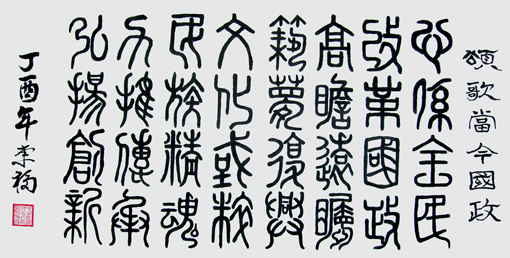 頌歌當今國政
心係全民
改革國政
高瞻遠矚
築夢復興
文化
民族精魂
力傳承
弘揚創新
丁酉年